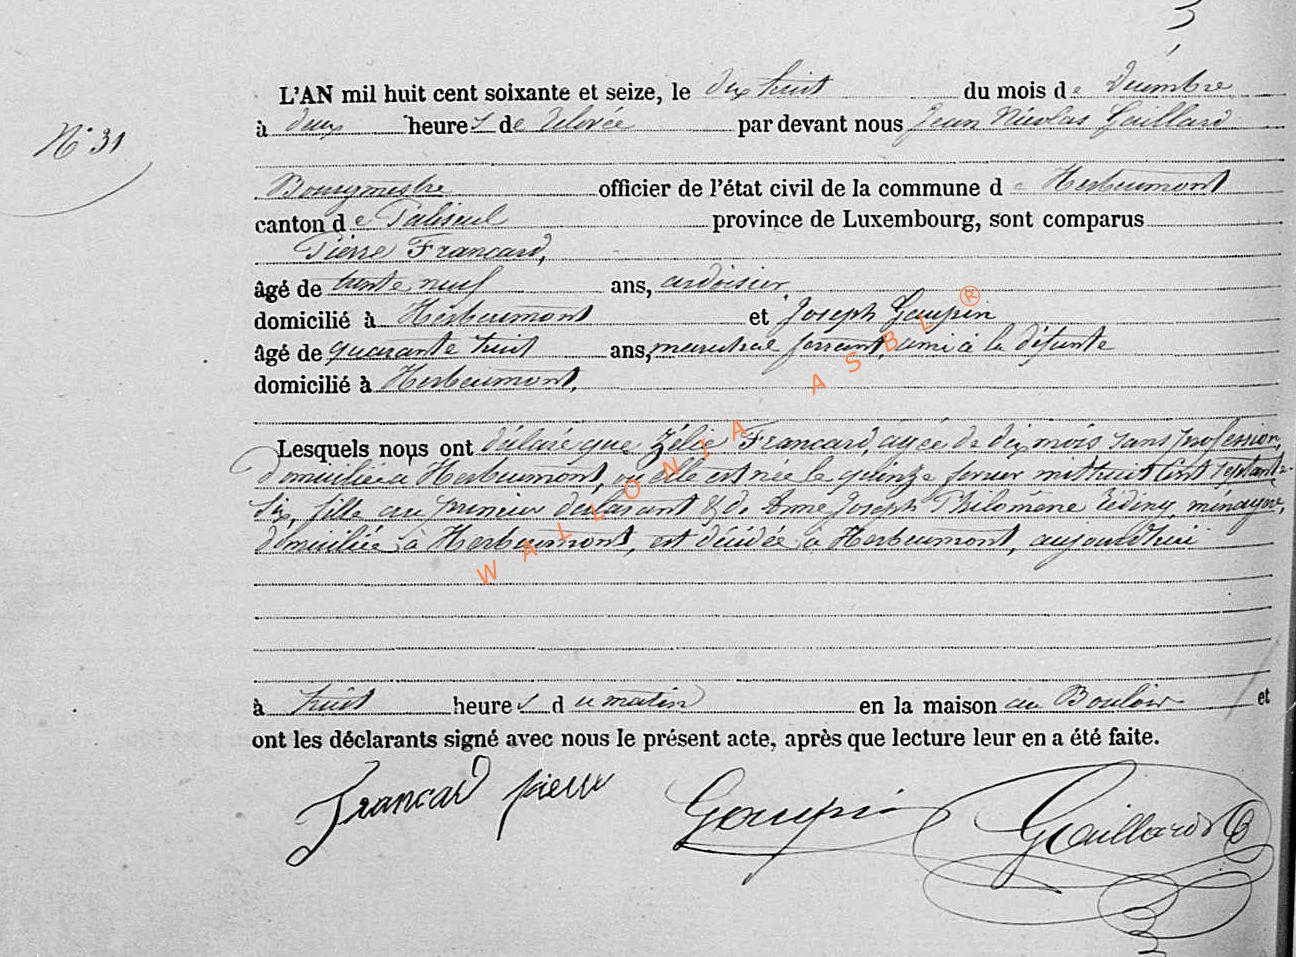 N° 31
L'AN mil huit cent soixante et seize, le dix huit du mois de Décembre
à deux heures de relevée par devant nous Jean Nicolas Gaillard
Bourgmestre officier de l'état civil de la commune de Herbeumont
canton de Paliseul province de Luxembourg, sont comparus
Pierre Francard,
âgé de trente neuf ans, ardoisier,
domicilié à Herbeumont et Joseph Goupin
âgé de quarante huit ans, maréchal ferrant, ami à la défunte
domicilié à Herbeumont,
Lesquels nous ont déclaré que Zélie Francard, agée de dix mois sans profession,
domiciliée à Herbeumont, où elle est née le quinze février mil huit cent septante-
six, fille au premier déclarant & de Anne Joseph Philomène Réding, ménagère,
domiciliée à Herbeumont, est décédée à Herbeumont, aujourd'hui
à huit heures du matin en la maison au Bouloir et
ont les déclarants signé avec nous le présent acte, après que lecture leur en a été faite.
Francard pierre Goupin Gaillard
WALLONIA ASBL ®